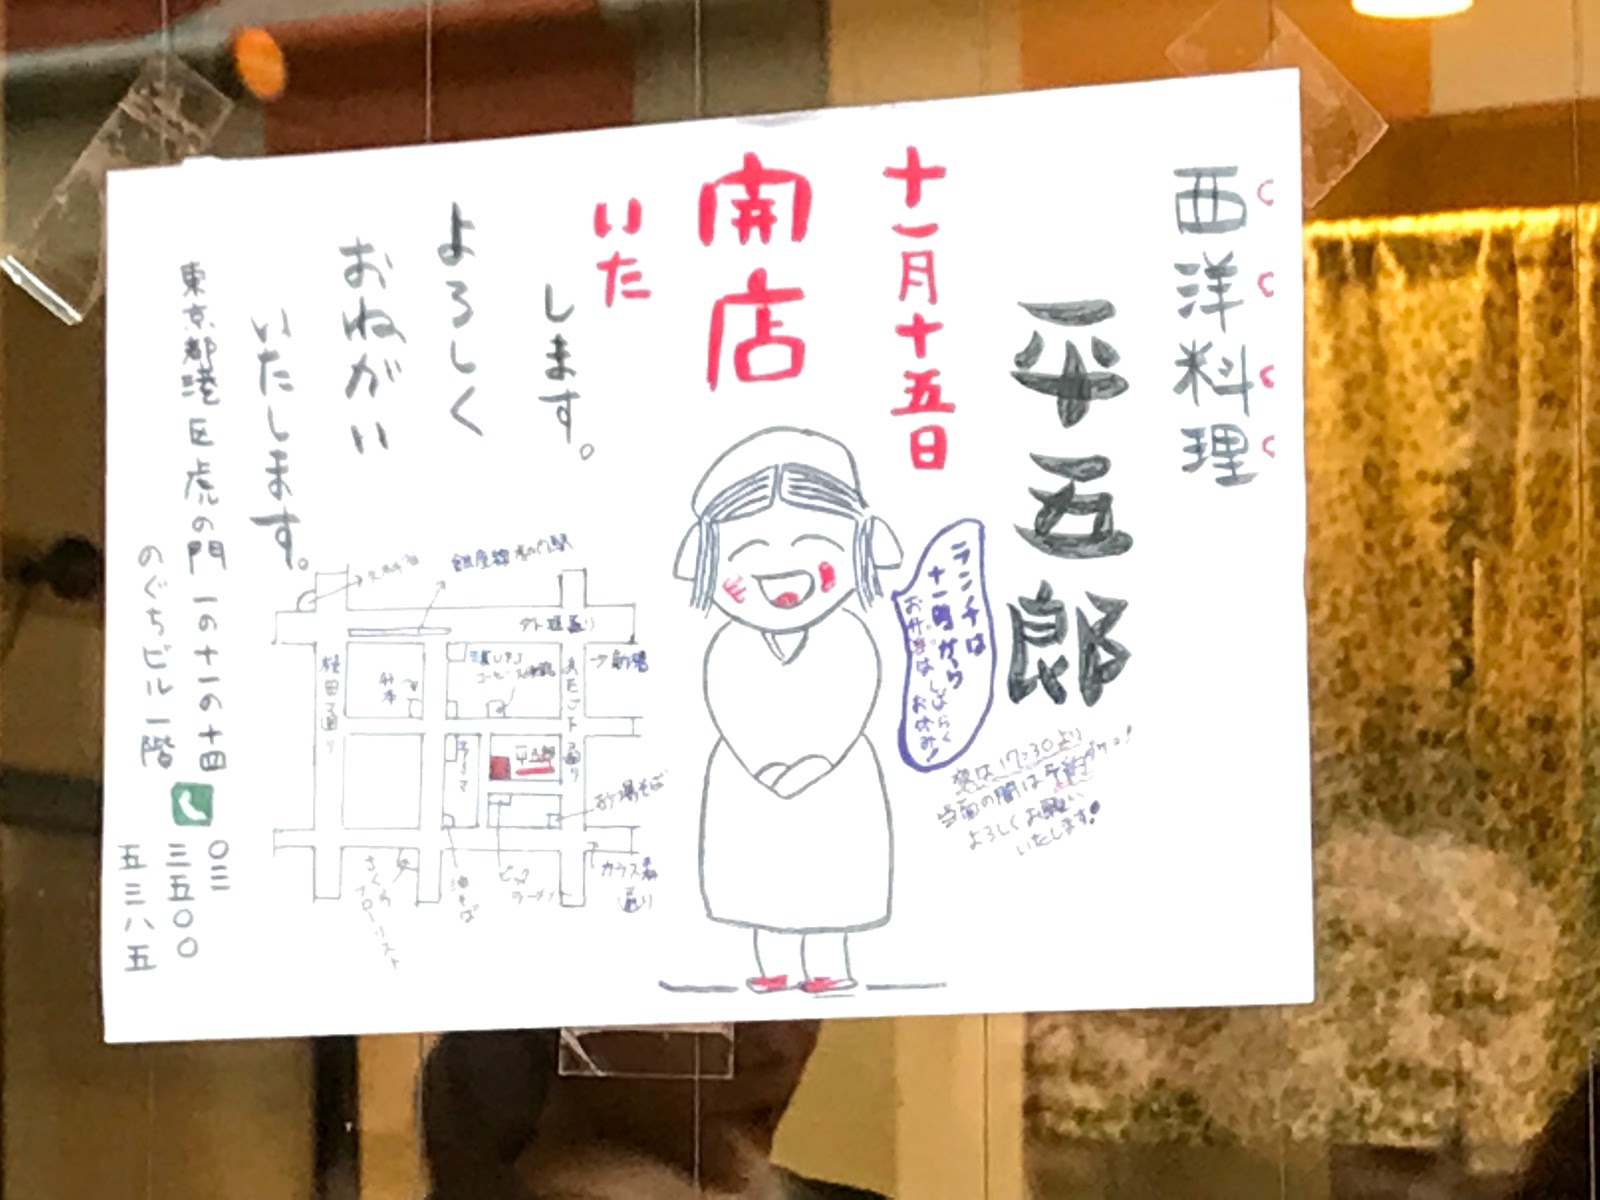 西洋料理
平五郎
十一月十五日
開店
いた
します。
よろしく
おねがい
いたします。
東京都港区虎の門一の十一の十四
のぐちビル一階
〇三
三五〇〇
五三八五
ランチは
十一時から
お弁当はしばらく
お休み!
夜は17:30より
当面の間は予約のみ!
よろしくお願い
いたします!
外堀通り
桜田通り
→新橋
平五郎
砂場そば